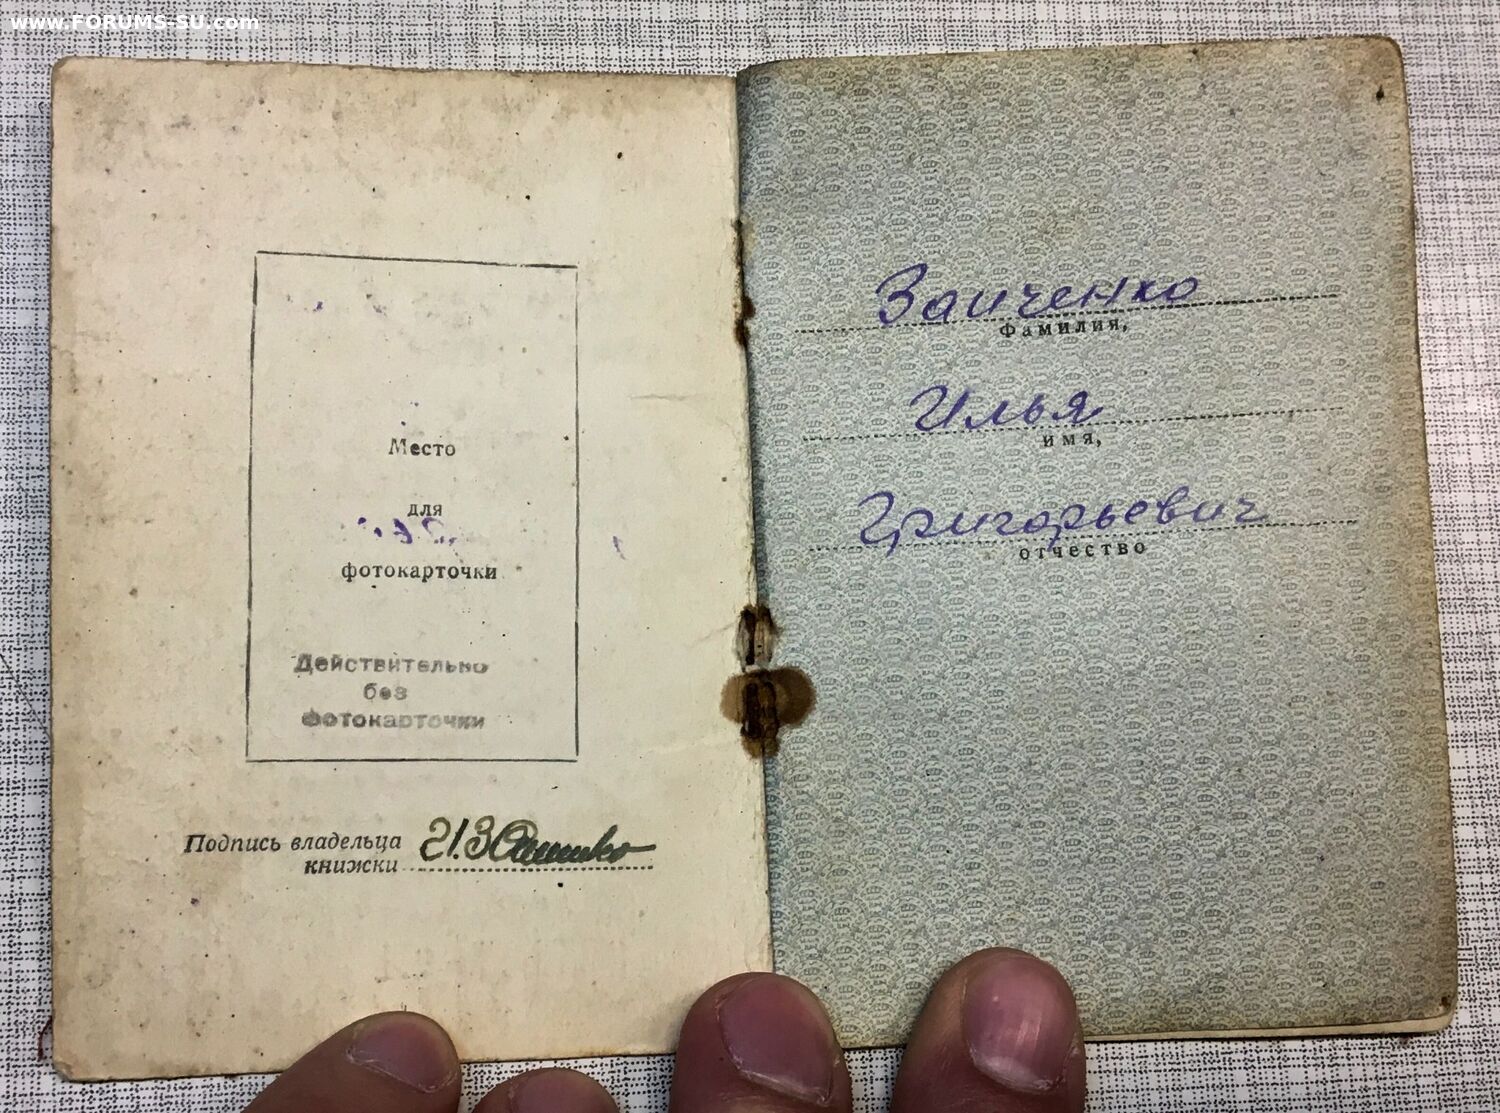 www.FORUMS-SU.com
Место
для
фотокарточки
Действительно
без
фотокарточки
Подпись владельца
книжки
Заиченко
Фамилия,
Илья
имя,
Григорьевич
отчество